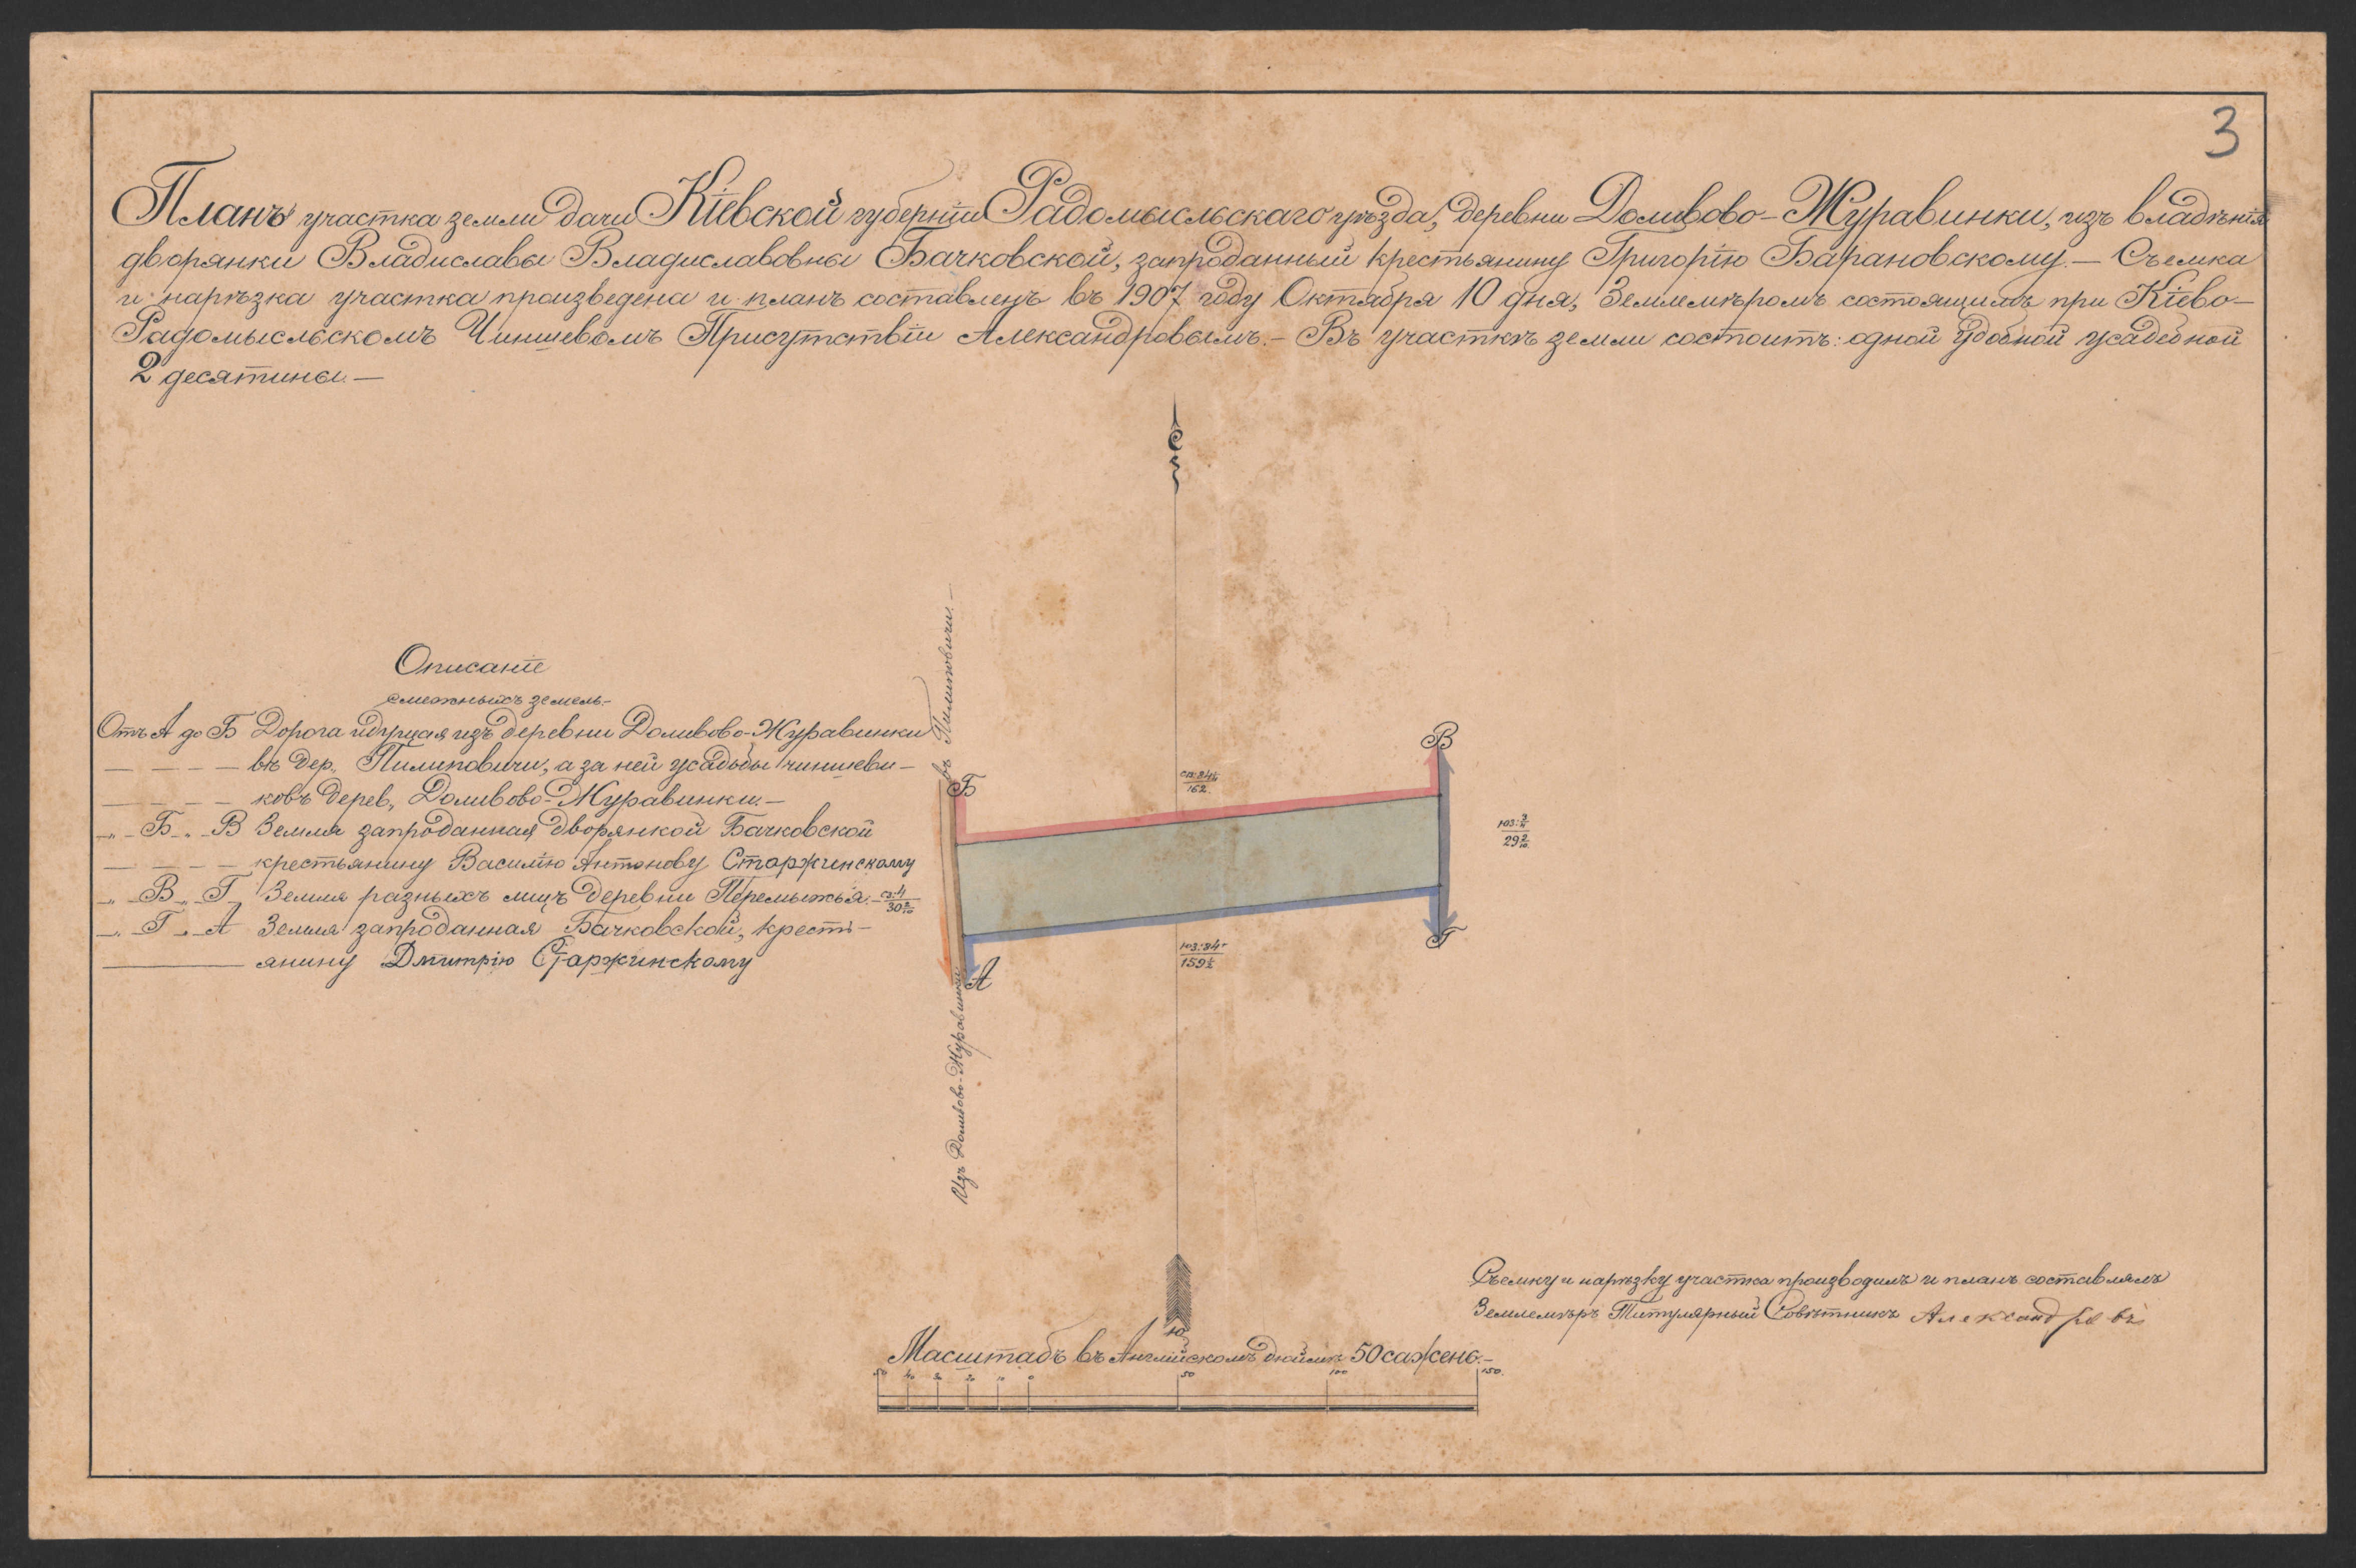 3
Планъ участка земли дачи Кіевской губерніи Радомысльскаго уѣзда, деревни Доливово-Журавинки, изъ владѣнія
дворянки Владиславы Владиславовны Бачковской, запроданный крестьянину Григорію Барановскому.— Съемка
и нарѣзка участка произведена и планъ составленъ въ 1907 году Октября 10 дня, Землемѣромъ состоящимъ при Кіево-
Радомысльскомъ Чиншевомъ Присутствіи Александровымъ.— Въ участкѣ земли состоитъ: одной удобной усадебной
2 десятины.—
С
Описаніе
смежныхъ земель.—
Отъ А до Б Дорога идущая изъ деревни Доливово-Журавинки
въ дер. Пилиповичи, а за ней усадьбы чиншеви-
ковъ дерев. Доливово-Журавинки.—
„ Б „ В Земля запроданная дворянкой Бачковской
крестьянину Василію Антонову Старжинскому
„ В „ Г Земля разныхъ лицъ деревни Перемыжья.—
„ Г „ А Земля запроданная Бачковской, кресть-
янину Дмитрію Старжинскому
въ Пилиповичи.—
Изъ Доливово-Журавинки
Б
В
СВ:84½
162.
ЮЗ:¾
29 2/10
СЗ:4
30 2/10
ЮЗ:84
159½
Г
А
Ю
Съемку и нарѣзку участка производилъ и планъ составлялъ
Землемѣръ Титулярный Совѣтникъ Александровъ
Масштабъ въ Англійскомъ дюймѣ 50 сажень.—
50 40 30 20 10 0 50 100 150.